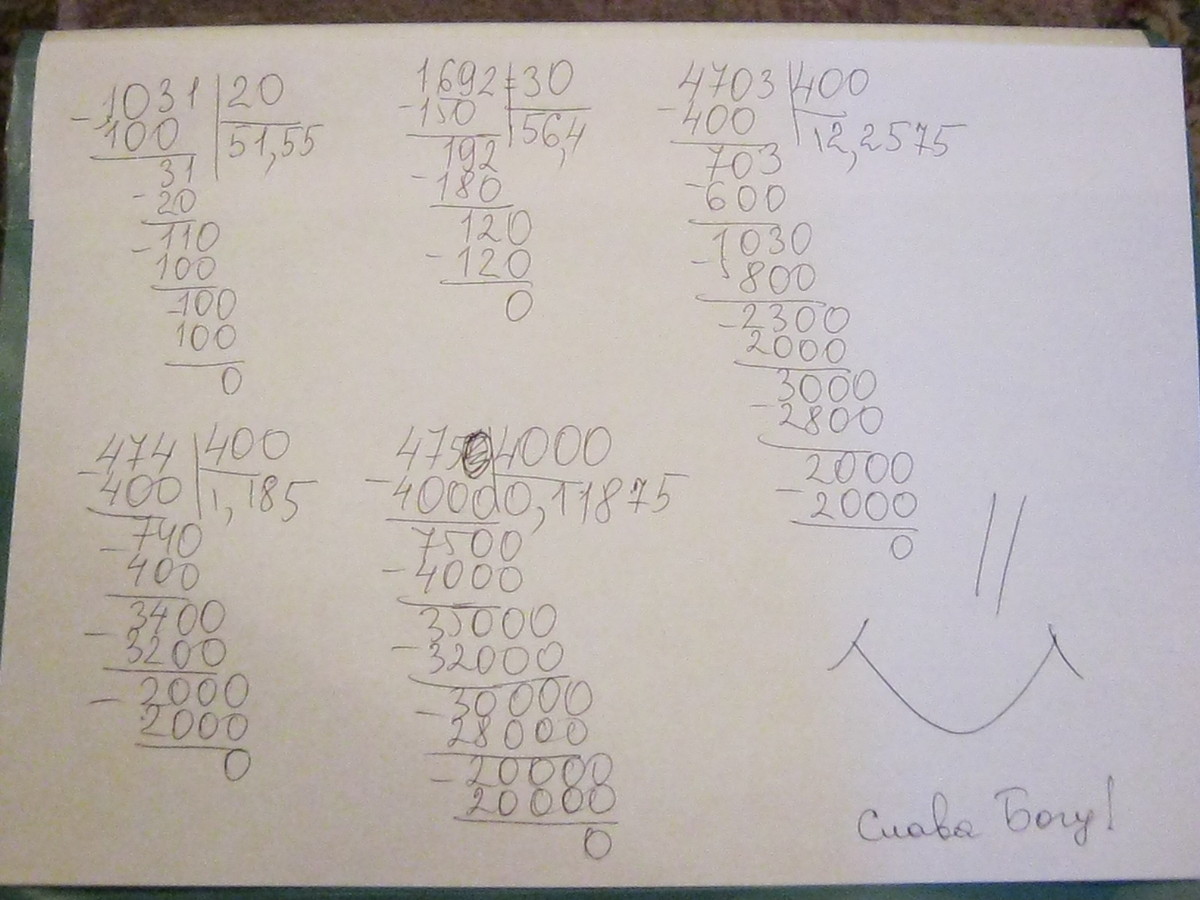 1031 20
-100 51,55
31
-20
-110
100
-100
100
0
1692 30
-150 56,4
192
-180
120
-120
0
4703 400
-400 12,2575
703
-600
1030
-800
-2300
2000
3000
-2800
2000
-2000
0
474 400
-400 1,185
-740
400
3400
-3200
-2000
2000
0
475 4000
-4000 0,11875
7500
-4000
35000
-32000
-30000
28000
-20000
20000
0
Слава Богу!